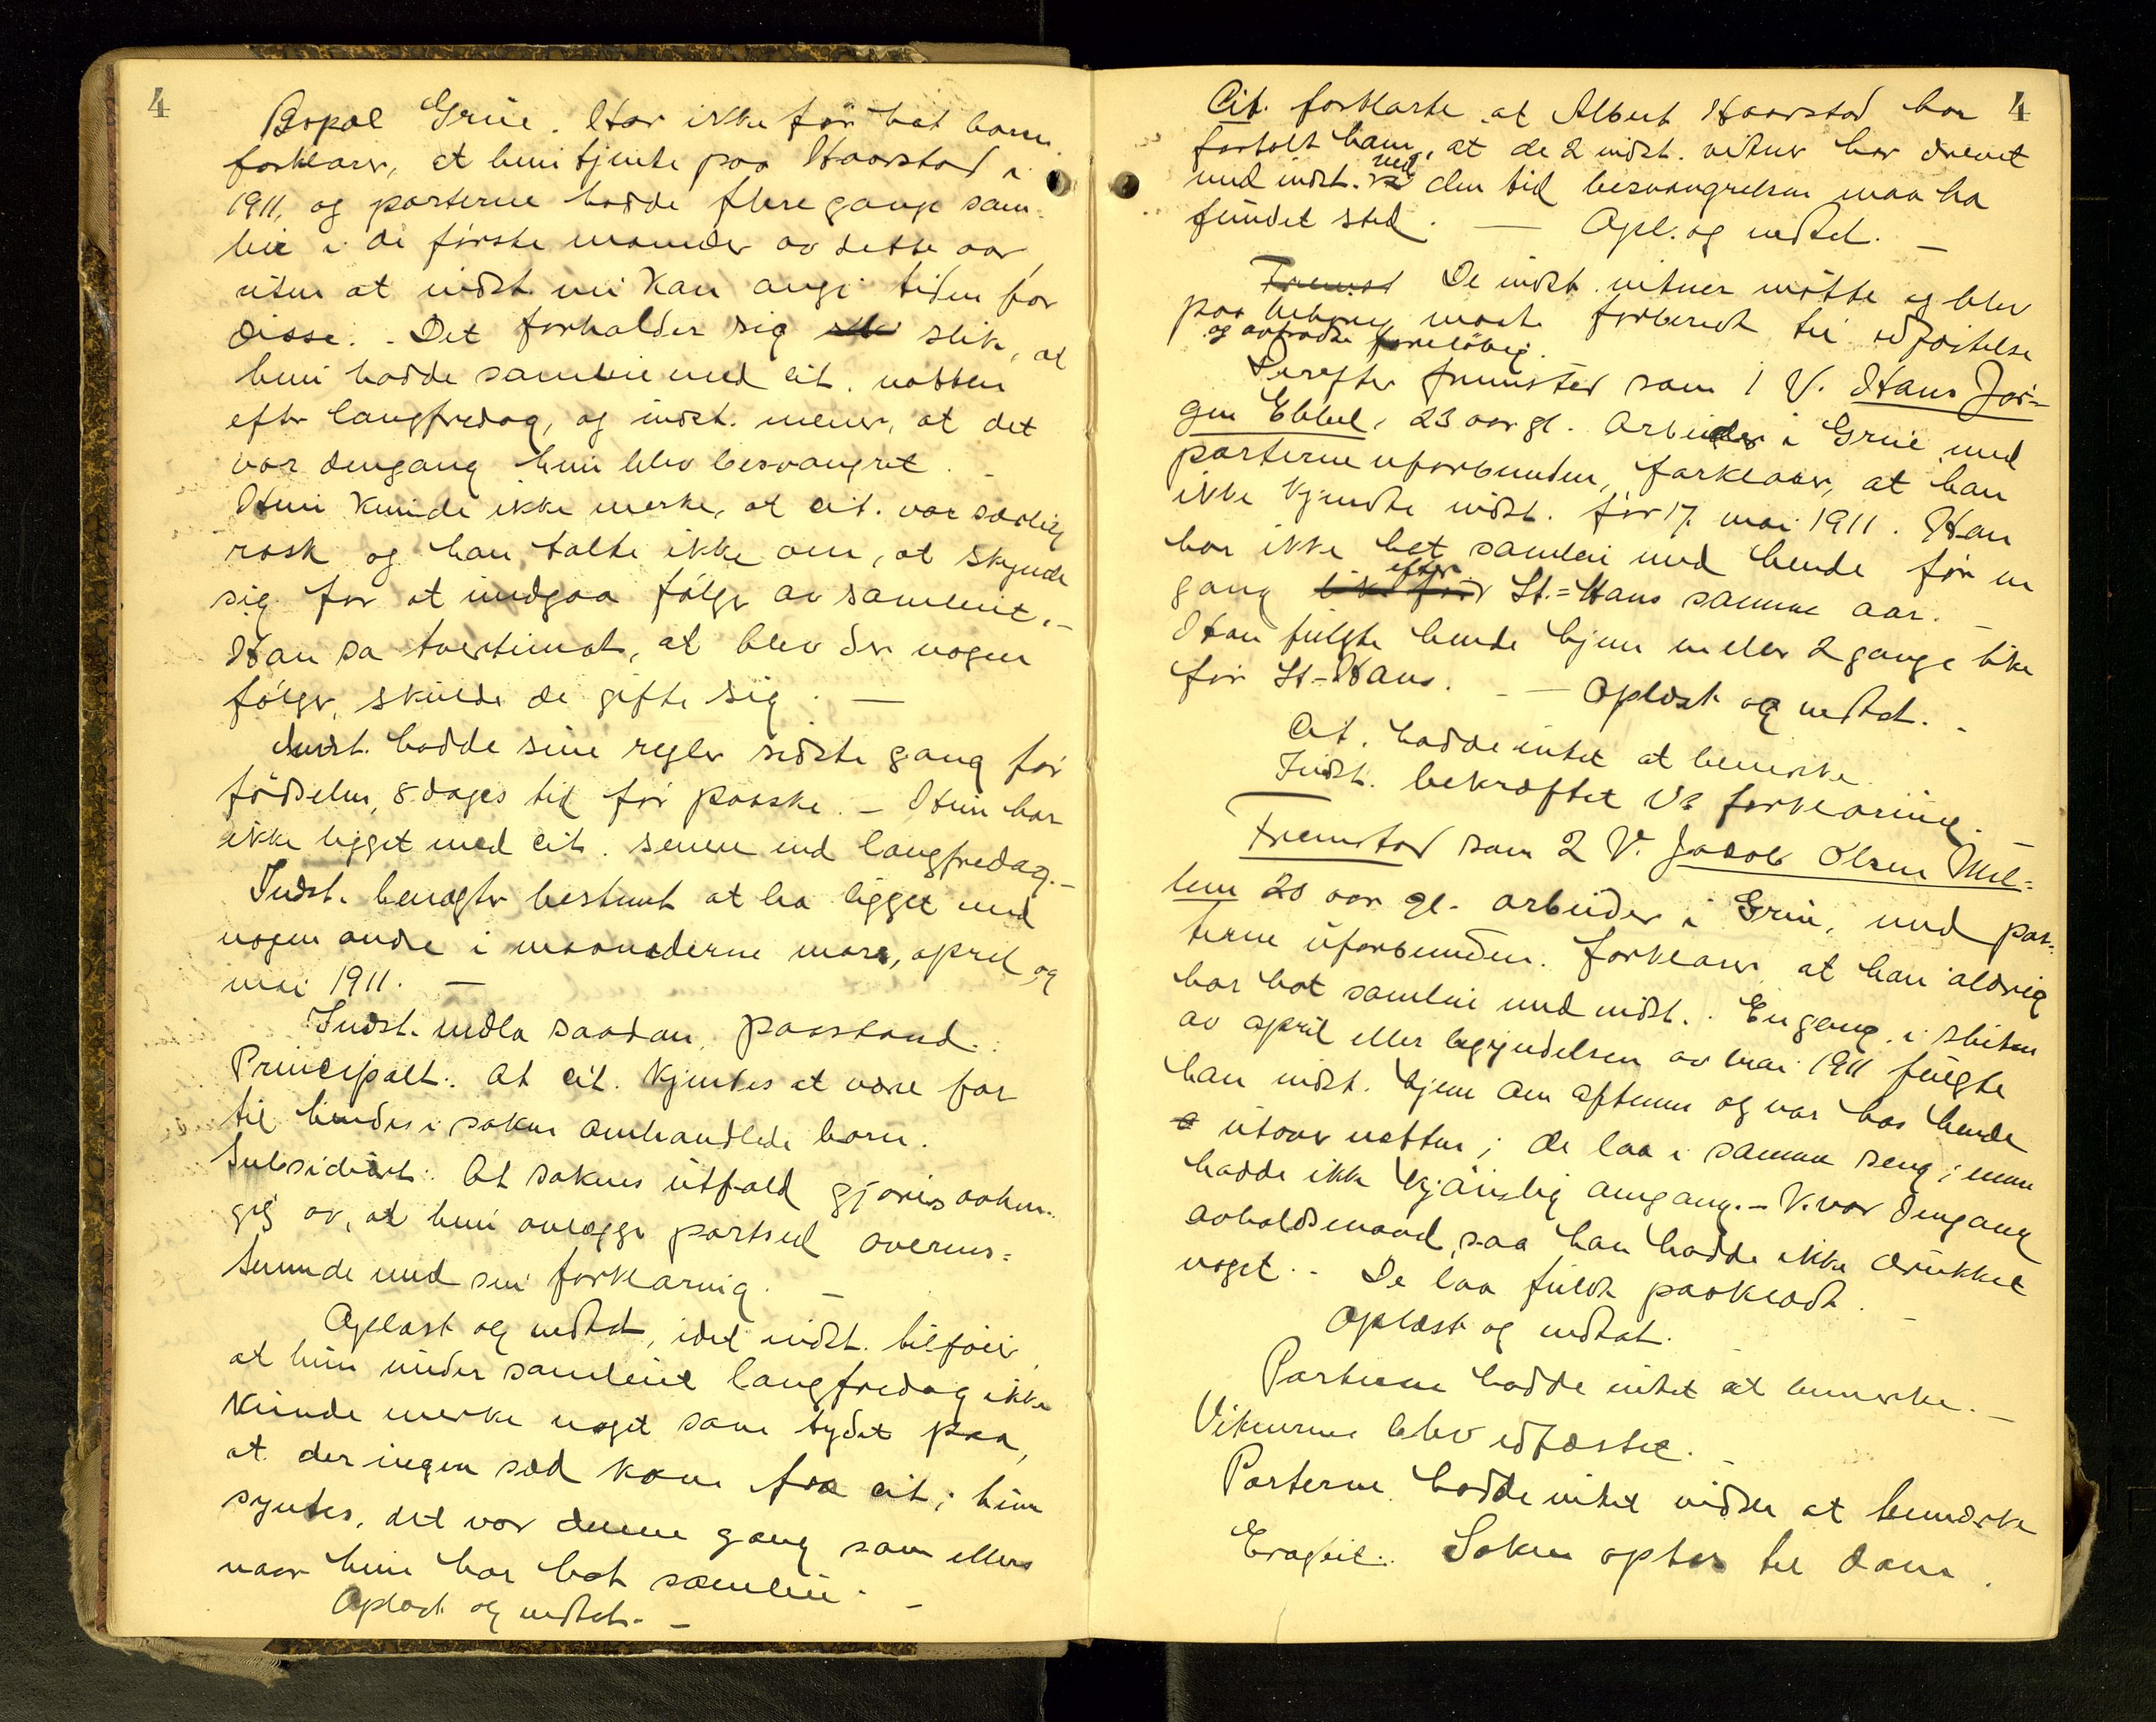 4
Bopæl Grue. Har ikke før hat barn.
forklarer, at hun tjente paa Haarstad i
1911, og parterne hadde flere gange sam-
leie i de første maaneder av dette aar,
uten at indst. nu kan angi tiden for
disse. - Det forholder sig slik, at
hun hadde samleie med cit. natten
efter langfredag, og indst. mener, at det
var dengang hun blev besvangret. -
Hun kunde ikke merke, at cit. var særlig
rask og han talte ikke om, at skynde
sig for at undgaa følger av samleiet. -
Han sa tvertimot, at blev der nogen
følger, skulde de gifte sig. -
Indst. hadde sine regler sidste gang før
fødselen, 8 dages tid før paaske. - Hun har
ikke ligget med cit. senere end langfredag. -
Indst. benegter bestemt at ha ligget med
nogen andre i maanederne mars, april og
mai 1911. -
Indst. nedla saadan paastand:
Principalt: At cit. kjendes at være far
til hendes i saken omhandlede barn.
Subsidiært: At sakens utfald gjøres avhæn-
gig av, at hun avlægger partsed overens-
stemmende med sin forklaring. -
Oplæst og vedtat, idet indst. tilføier,
at hun under samleiet langfredag ikke
kunde merke noget som tydet paa,
at der ingen sæd kom fra cit; hun
syntes, det var denne gang som ellers
naar hun har hat samleie. -
Oplæst og vedtat. -
4
Cit. forklarte, at Albert Haarstad har
fortalt ham, at de 2 indst. vitner har drevet
med indst. ved den tid besvangrelsen maa ha
fundet sted. - Opl. og vedtat. -
Fremst De indst. vitner møtte og blev
paa behørig maate forberedt til edfæstelse
og avtraadte foreløbig.
Derefter fremsted som 1 V. Hans Jør-
gen Ebbel, 23 aar gl. Arbeider i Grue, med
parterne uforbunden, forklarer, at han
ikke kjendte indst. før 17. mai 1911. Han
har ikke hat samleie med hende før en
gang like før efter St.=Hans samme aar. -
Han fulgte hende hjem en eller 2 gange like
før St-Hans. - Oplæst og vedtat. -
Cit. hadde intet at bemerke.
Indst. bekræftet V's forklaring.
Fremstod som 2 V. Jacob Olsen Mel-
lem 20 aar gl. arbeider i Grue, med par-
terne uforbunden. forklarer at han aldrig
har hat samleie med indst. Engang i slutten
av april eller begyndelsen av mai 1911 fulgte
han indst. hjem om aftenen og var hos hende
utover natten; de laa i samme seng; men
hadde ikke kjønslig omgang. - V. var dengang
avholdsmand, saa han hadde ikke drukket
noget. - De laa fuldt paaklædt. -
Oplæst og vedtat.
Parterne hadde intet at bemerke. -
Vitnerne blev edfæstet.
Parterne hadde intet videre at bemærke
Eragtet: Saken optas til dom.